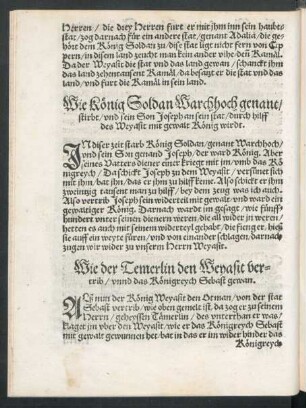 Herren / die drey Herren furt er mit jhm inn sein haubt
stat / zog darnach für ein andere stat / genant Adalia / die ge-
hört dem König Soldan zu / dise stat ligt nicht fern von Cy-
pern / in disem land zeucht man kein ander vihe / deñ Kamäl.
Da der Weyasit die stat vnd das land gewan / schanckt jhm
das land zehentausent Kamäl / da besatzt er die stat vnd das
land / vnd furt die Kamäl in sein land.
Wie König Soldan Warchhoch genant /
stirbt / vnd sein Son Joseph an sein stat / durch hilff
des Weyasit mit gewalt König wirdt.
IN diser zeit starb König Soldan / genant Warchhoch /
vnd sein Son genand Joseph / der ward König. Aber
seines Vatters diener einer kriegt mit jm / vmb das Kö-
nigreych / Da schickt Joseph zu dem Weyasit / versünet sich
mit jhm / bat jhn / das er jhm zu hilff keme. Also schickt er jhm
zweintzig tausent man zu hilff / bey dem zeug was ich auch.
Also vertrib Joseph sein widerteil mit gewalt / vnd ward ein
gewaltiger König. Darnach wardt im gesagt / wie fünff-
hundert vnter seinen dienern vieren / die all wider jn weren /
hetten es auch mit seinem widerteyl gehabt / die fieng er / hieß
sie auff ein weyte füren / vnd von einander schlagen / darnach
zugen wir wider zu vnserm Herrn Weyasit.
Wie der Temerlin den Weyasit ver-
trib / vnnd das Königreych Sebast gewan.
ALs nun der König Weyasit den Otman / von der stat
Sebast vertrib / wie oben gemelt ist / da zog er zu seinem
Herrn / geheyssen Tämerlin / des vnterthan er was /
klaget jm vber den Weyasit / wie er das Königreych Sebast
mit gewalt gewinnen het / bat in das er im wider hinder das
Königreych